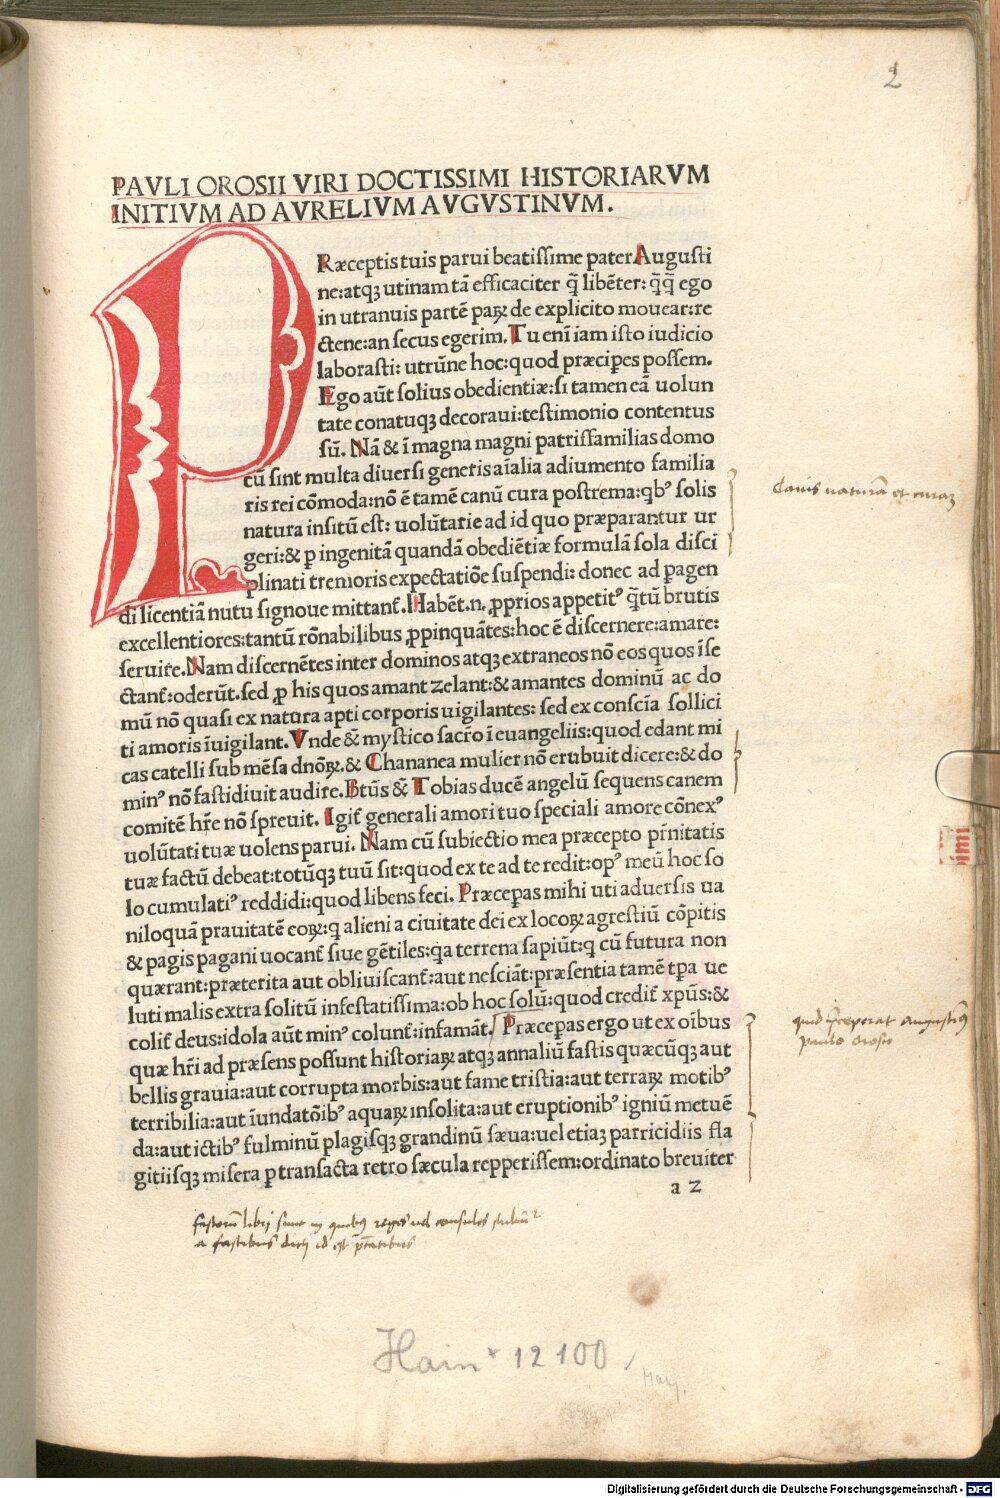 2
PAVLI OROSII VIRI DOCTISSIMI HISTORIARVM
INITIVM AD AVRELIVM AVGVSTINVM.
PRæceptis tuis parui beatissime pater Augusti
ne:atqȝ utinam tā efficaciter q̄ libēter: q̄q̄ ego
in utranuis partē paꝝ de explicito mouear:re
ctene:an secus egerim. Tu eni iam isto iudicio
laborasti: utrūne hoc:quod præciꝑes possem.
Ego aūt solius obedientiæ:si tamen eā uolun
tate conatuqȝ decoraui:testimonio contentus
sū. Nā & ī magna magni patrisfamilias domo
cū sint multa diuersi generis aīalia adiumento familia
ris rei cōmoda:nō ē tamē canū cura postrema:qbꝰ solis
natura insitū est: uolūtarie ad id quo præparantur ur
geri:& ꝑ ingenitā quandā obediētiæ formulā sola disci
plinati tremoris expectatiōe suspendi: donec ad ꝑagen
di licentiā nutu signoue mittant̄. Habēt.n. ꝓprios appetitꝰ q̄tū brutis
excellentiores:tantū rōnabilibus ꝓpinquātes:hoc ē discernere:amare:
seruire. Nam discernētes inter dominos atqȝ extraneos nō eos quos īse
ctant̄:oderūt.sed ꝓ his quos amant zelant:& amantes dominū ac do
mū nō quasi ex natura apti corporis uigilantes: sed ex conscīa sollici
ti amoris īuigilant. Vnde & mystico sacr̄o ī euangeliis:quod edant mi
cas catelli sub mēsa dnōꝝ.& Chananea mulier nō erubuit dicere:& do
minꝰ nō fastidiuit audire. Btūs & Tobias ducē angelū sequens canem
comitē hr̄e nō spreuit. Igit̄ generali amori tuo speciali amore cōnexꝰ
uolūtati tuæ uolens parui. Nam cū subiectio mea præcepto pr̄nitatis
tuæ factū debeat:totūqȝ tuū sit:quod ex te ad te redit:opꝰ meū hoc so
lo cumulatiꝰ reddidi:quod libens feci. Præceꝑas mihi uti aduersis ua
niloquā prauitatē eoꝝ:q alieni a ciuitate dei ex locoꝝ agrestiū cōpitis
& pagis pagani uocant̄ siue gētiles:qa terrena sapiūt:q cū futura non
quærant:præterita aut obliuiscant̄:aut nesciāt:præsentia tamē tꝑa ue
luti malis extra solitū infestatissima:ob hoc solū:quod credit̄ xpūs:&
colit̄ deus:idola aūt minꝰ colunt̄:infamāt. Præceꝑas ergo ut ex oībus
quæ hr̄i ad præsens possunt historiaꝝ atqȝ annaliū fastis quæcūqȝ aut
bellis grauia:aut corrupta morbis:aut fame tristia:aut terraꝝ motibꝰ
terribilia:aut īundatōibꝰ aquaꝝ insolita:aut eruptionibꝰ igniū metuē
da:aut ictibꝰ fulminū plagisqȝ grandinū sæua:uel etiaȝ parricidiis fla
gitiisqȝ misera ꝑ transacta retro sæcula repperissem:ordinato breuiter
a 2
Canis naturā et curaȝ
quid p̄ceperat Augustinꝰ
paulo orosio
fastorū libri sunt in quibus reges uel consules
a fastibus dicti id est
Hain * 12100
Digitalisierung gefördert durch die Deutsche Forschungsgemeinschaft - DFG